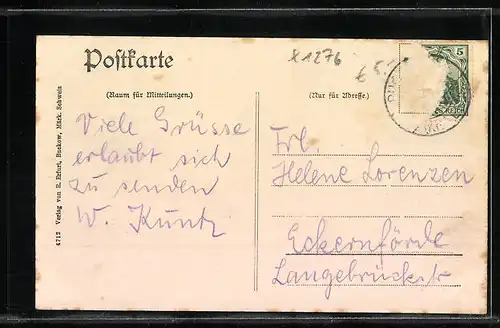 Postkarte
(Raum für Mitteilungen.)
(Nur für Adresse.)
x 1276
5
Viele Grüsse
erlaubt sich
zu senden
W. Kuntz
Frl.
Helene Lorenzen
Eckernförde
Langebrückstr
4712 Verlag von R. Erfurt, Buckow, Märk. Schweiz